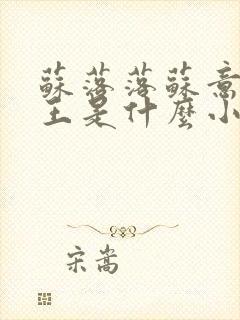 蘇落落蘇意
王是什麼小
宋嵩